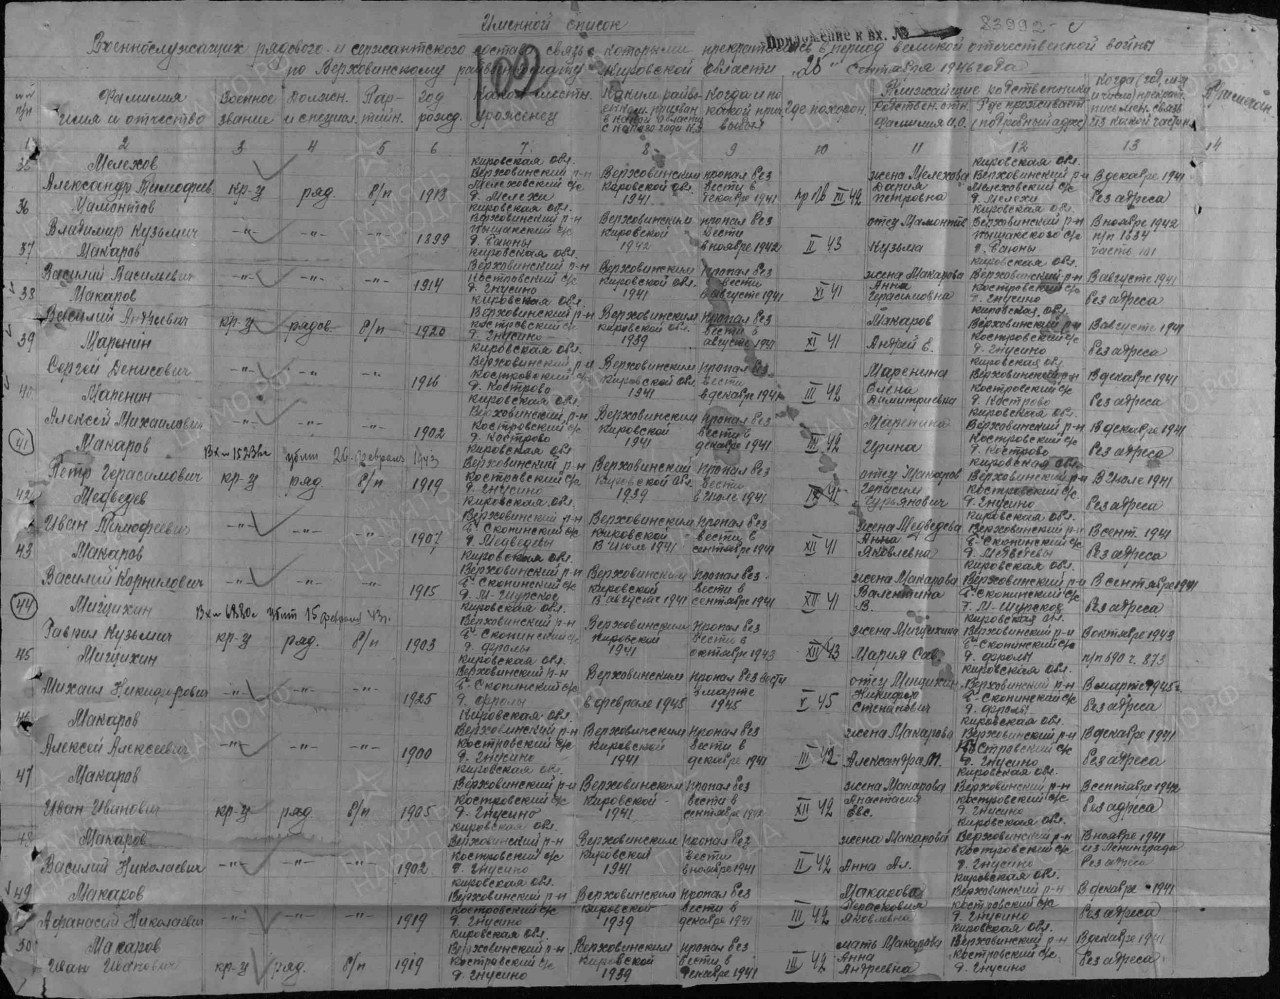 Именной список
Приложение к вх. № 83992 с
Военнослужащих рядового и сержантского состава связь с которыми прекратилась в период великой отечественной войны
по Верховинскому Кировской области "25" сентября 1946 года
№№ п/п
Фамилия Имя и отчество
Военное звание
Должн. и специал.
Пар-тийн.
Год рожд.
уроженец
Каким райвоенкоматом призван
Когда и по какой при. выбыл
Где похорон.
Ближайшие родственники
родствен. отн. Фамилия И.О.
Где проживает (подробный адрес)
Когда (год, м-ц и число) прекрат. письмен. связь из какой части
Примечан.
1 2 3 4 5 6 7 8 9 10 11 12 13 14
35 Мелехов Александр Тимофеев. кр-ц ряд. б/п 1913
Кировская обл. Верховинский р-н Мелеховский с/с д. Мелехи
Верховинским Кировской обл. 1941
пропал без вести в декабре 1941
пр п/в III 42
жена Мелехова Дария Петровна
Кировская обл. Верховинский р-н Мелеховский с/с д. Мелехи
В декабре 1941 без адреса
36 Мамонтов Владимир Кузьмич -"- -"- -"- 1899
Кировская обл. Верховинский р-н
Верховинским Кировской 1942
пропал без вести в ноябре 1942
II 43
отец Мамонтов Кузьма
Верховинский р-н
В ноябре 1942 п/п 1634 часть 101
37 Макаров Василий Васильевич -"- -"- -"- 1914
Кировская обл. Верховинский р-н Костровский с/с д. Гнусино
Верховинским Кировской обл. 1941
пропал без вести в августе 1941
XI 41
жена Макарова Анна Герасимовна
Кировская обл. Верховинский р-н Костровский с/с д. Гнусино
В августе 1941 без адреса
38 Макаров Василий кр-ц рядов. б/п 1920
Кировская обл. Верховинский р-н Костровский с/с д. Гнусино
Верховинским Кировской обл. 1939
пропал без вести в августе 1941
XI 41
Макаров Андрей Е.
Кировская обл. Верховинский р-н Костровский с/с д. Гнусино
В августе 1941 без адреса
39 Маренин Сергей Денисович -"- -"- -"- 1916
Кировская обл. Верховинский р-н Костровский с/с д. Кострово
Верховинским Кировской обл. 1941
пропал без вести в декабре 1941
III 42
Маренина Елена Димитриевна
Кировская обл. Верховинский р-н Костровский с/с д. Кострово
В декабре 1941 без адреса
40 Маренин Алексей Михайлович -"- -"- -"- 1902
Кировская обл. Верховинский р-н Костровский с/с д. Кострово
Верховинским Кировской 1941
пропал без вести в декабре 1941
III 42
Маренина Ирина
Кировская обл. Верховинский р-н Костровский с/с д. Кострово
В декабре 1941 без адреса
41 Макаров Петр Герасимович кр-ц ряд. б/п 1919
убит 26 февраля 1943
Кировская обл. Верховинский р-н Костровский с/с д. Гнусино
Верховинским Кировской обл. 1939
пропал без вести в июле 1941
отец Макаров Герасим Гурьянович
Кировская обл. Верховинский р-н Костровский с/с д. Гнусино
В июле 1941 без адреса
42 Медведев Иван Тимофеевич -"- -"- -"- 1907
Кировская обл. Верховинский р-н Б-Скопинский с/с д. Медведевы
Верховинским Кировской В июле 1941
пропал без вести в сентябре 1941
XII 41
жена Медведева Анна Яковлевна
Кировская обл. Верховинский р-н Б-Скопинский с/с д. Медведевы
В сент. 1941 без адреса
43 Макаров Василий Корнилович -"- -"- -"- 1915
Кировская обл. Верховинский р-н Б-Скопинский с/с
Верховинским Кировской В августе 1941
пропал без вести в сентябре 1941
XII 41
жена Макарова Валентина В.
Кировская обл. Верховинский р-н Б-Скопинский с/с
В сентябре 1941 без адреса
44 Мищихин Гаврил Кузьмич кр-ц ряд. б/п 1903
убит 15 февраля 43 г.
Кировская обл. Верховинский р-н Б-Скопинский с/с д. Фролы
Верховинским Кировской 1941
пропал без вести в октябре 1943
XII 43
жена Мищихина Мария Сав.
Кировская обл. Верховинский р-н Б-Скопинский с/с д. Фролы
В октябре 1943 п/п 690 ч. 873
45 Мищихин Михаил Никифорович -"- -"- -"- 1925
Кировская обл. Верховинский р-н Б-Скопинский с/с д. Фролы
Верховинским в феврале 1945
пропал без вести в марте 1945
V 45
отец Мищихин Никифор Степанович
Кировская обл. Верховинский р-н Б-Скопинский с/с д. Фролы
В марте 1945 г. без адреса
46 Макаров Алексей Алексеевич -"- -"- -"- 1900
Кировская обл. Верховинский р-н Костровский с/с д. Гнусино
Верховинским Кировской 1941
пропал без вести в декабре 1941
III 42
жена Макарова Александра М.
Кировская обл. Верховинский р-н Костровский с/с д. Гнусино
В декабре 1941 без адреса
47 Макаров Иван Иванович кр-ц ряд. б/п 1905
Кировская обл. Верховинский р-н Костровский с/с д. Гнусино
Верховинским Кировской 1941
пропал без вести в сентябре
XII 42
жена Макарова Анастасия Евс.
Кировская обл. Верховинский р-н Костровский с/с д. Гнусино
В сентябре без адреса
48 Макаров Василий Николаевич -"- -"- -"- 1902
Кировская обл. Верховинский р-н Костровский с/с д. Гнусино
Верховинским Кировской 1941
пропал без вести в ноябре 1941
II 42
жена Макарова Анна Ал.
Верховинский р-н Костровский с/с д. Гнусино
В ноябре 1941 из Ленинграда без адреса
49 Макаров Афанасий Николаевич -"- -"- -"- 1919
Кировская обл. Верховинский р-н Костровский с/с д. Гнусино
Верховинским Кировской 1939
пропал без вести в декабре 1941
III 42
Макарова Парасковия Яковлевна
Кировская обл. Верховинский р-н Костровский с/с д. Гнусино
В декабре 1941 без адреса
50 Макаров Иван Иванович кр-ц ряд. б/п 1919
Кировская обл. Верховинский р-н Костровский с/с д. Гнусино
Верховинским Кировской 1939
пропал без вести в декабре 1941
III 42
мать Макарова Анна Андреевна
Кировская обл. Верховинский р-н Костровский с/с д. Гнусино
В декабре 1941 без адреса